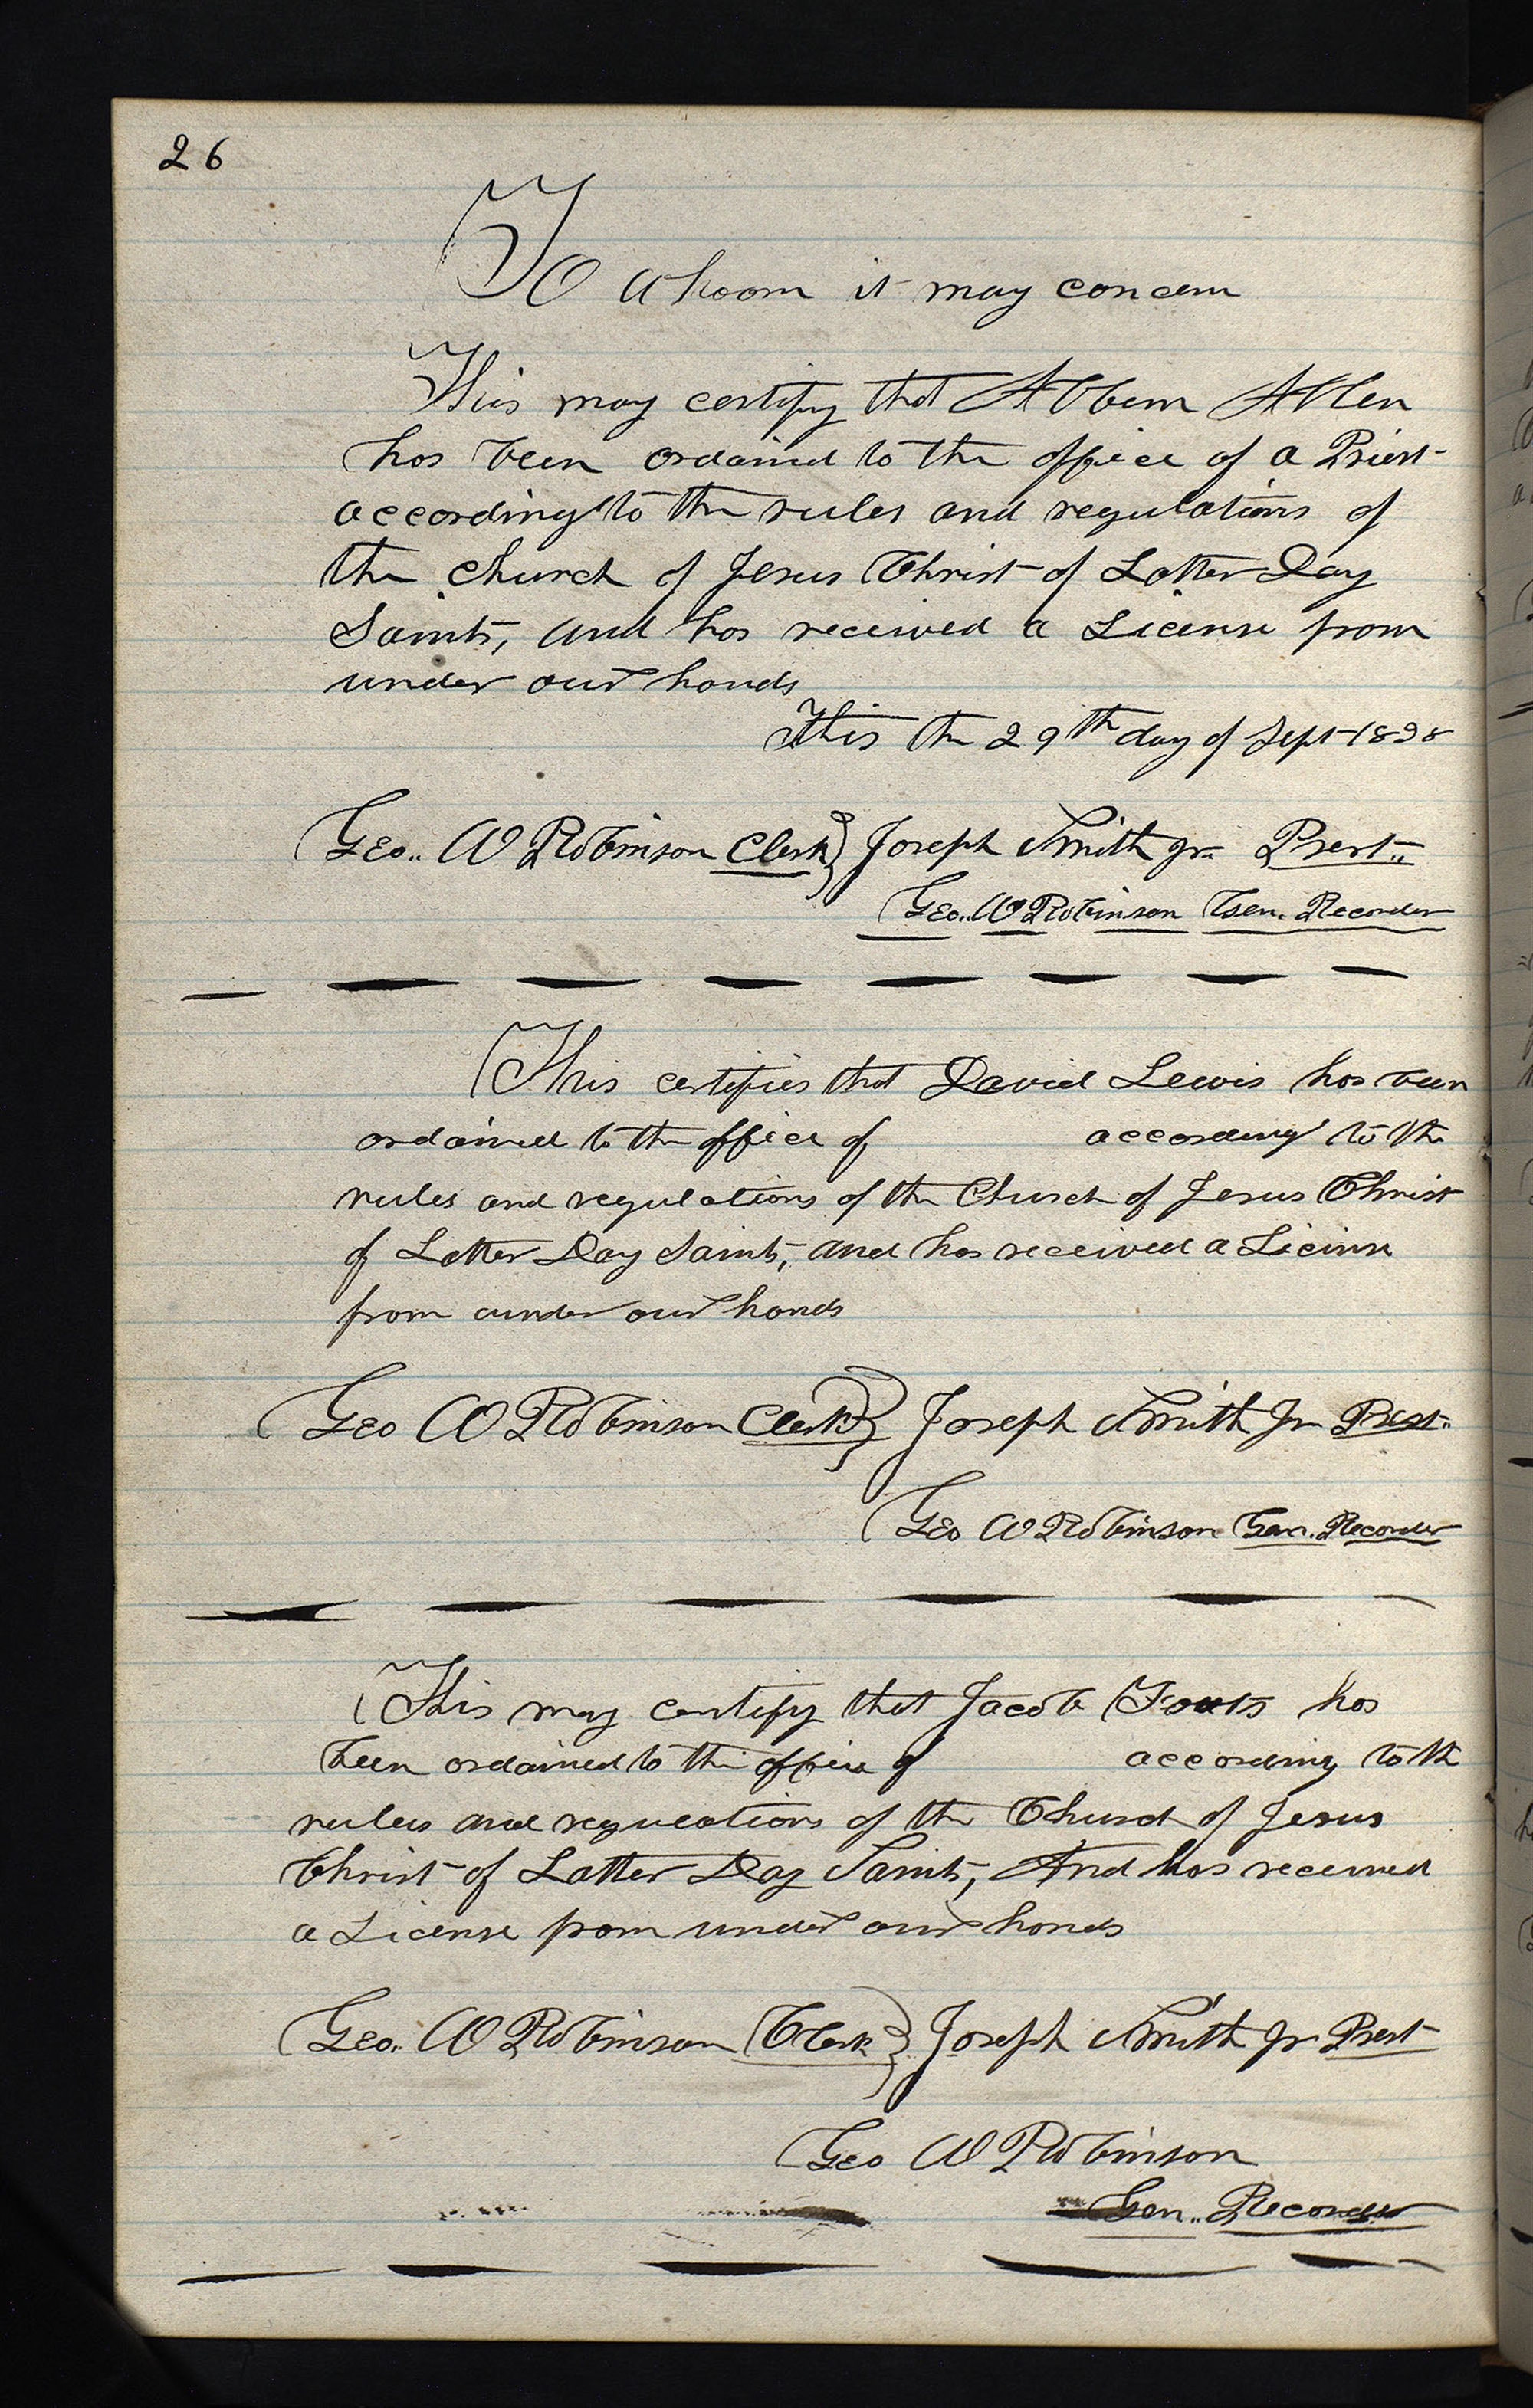 26
To whoom it may concern
This may certify that Albern Allen
has been ordained to the office of a Priest
according to the rules and regulations of
the church of Jesus Christ of Latter Day
Saints, and has received a License from
under our hands
This the 29th day of Sept 1838
Geo.. W Robinson Clerk} Joseph Smith jr. Prest..
Geo.. W Robinson Gen. Recorder
This certifies that David Lewis has been
ordained to the office of according to the
rules and regulations of the Church of Jesus Christ
of Latter Day Saints, and has received a License
from under our hands
Geo W Robinson Clerk} Joseph Smith Jr Prest..
Geo W Robinson Gen. Recorder
This may certify that Jacob Fouts has
been ordained to the office of according to th
rules and regulations of the Church of Jesus
Christ of Latter Day Saints, And has received
a License from under our hands
Geo.. W Robinson Clerk} Joseph Smith Jr Prest
Geo W Robinson
Gen.. Recorder